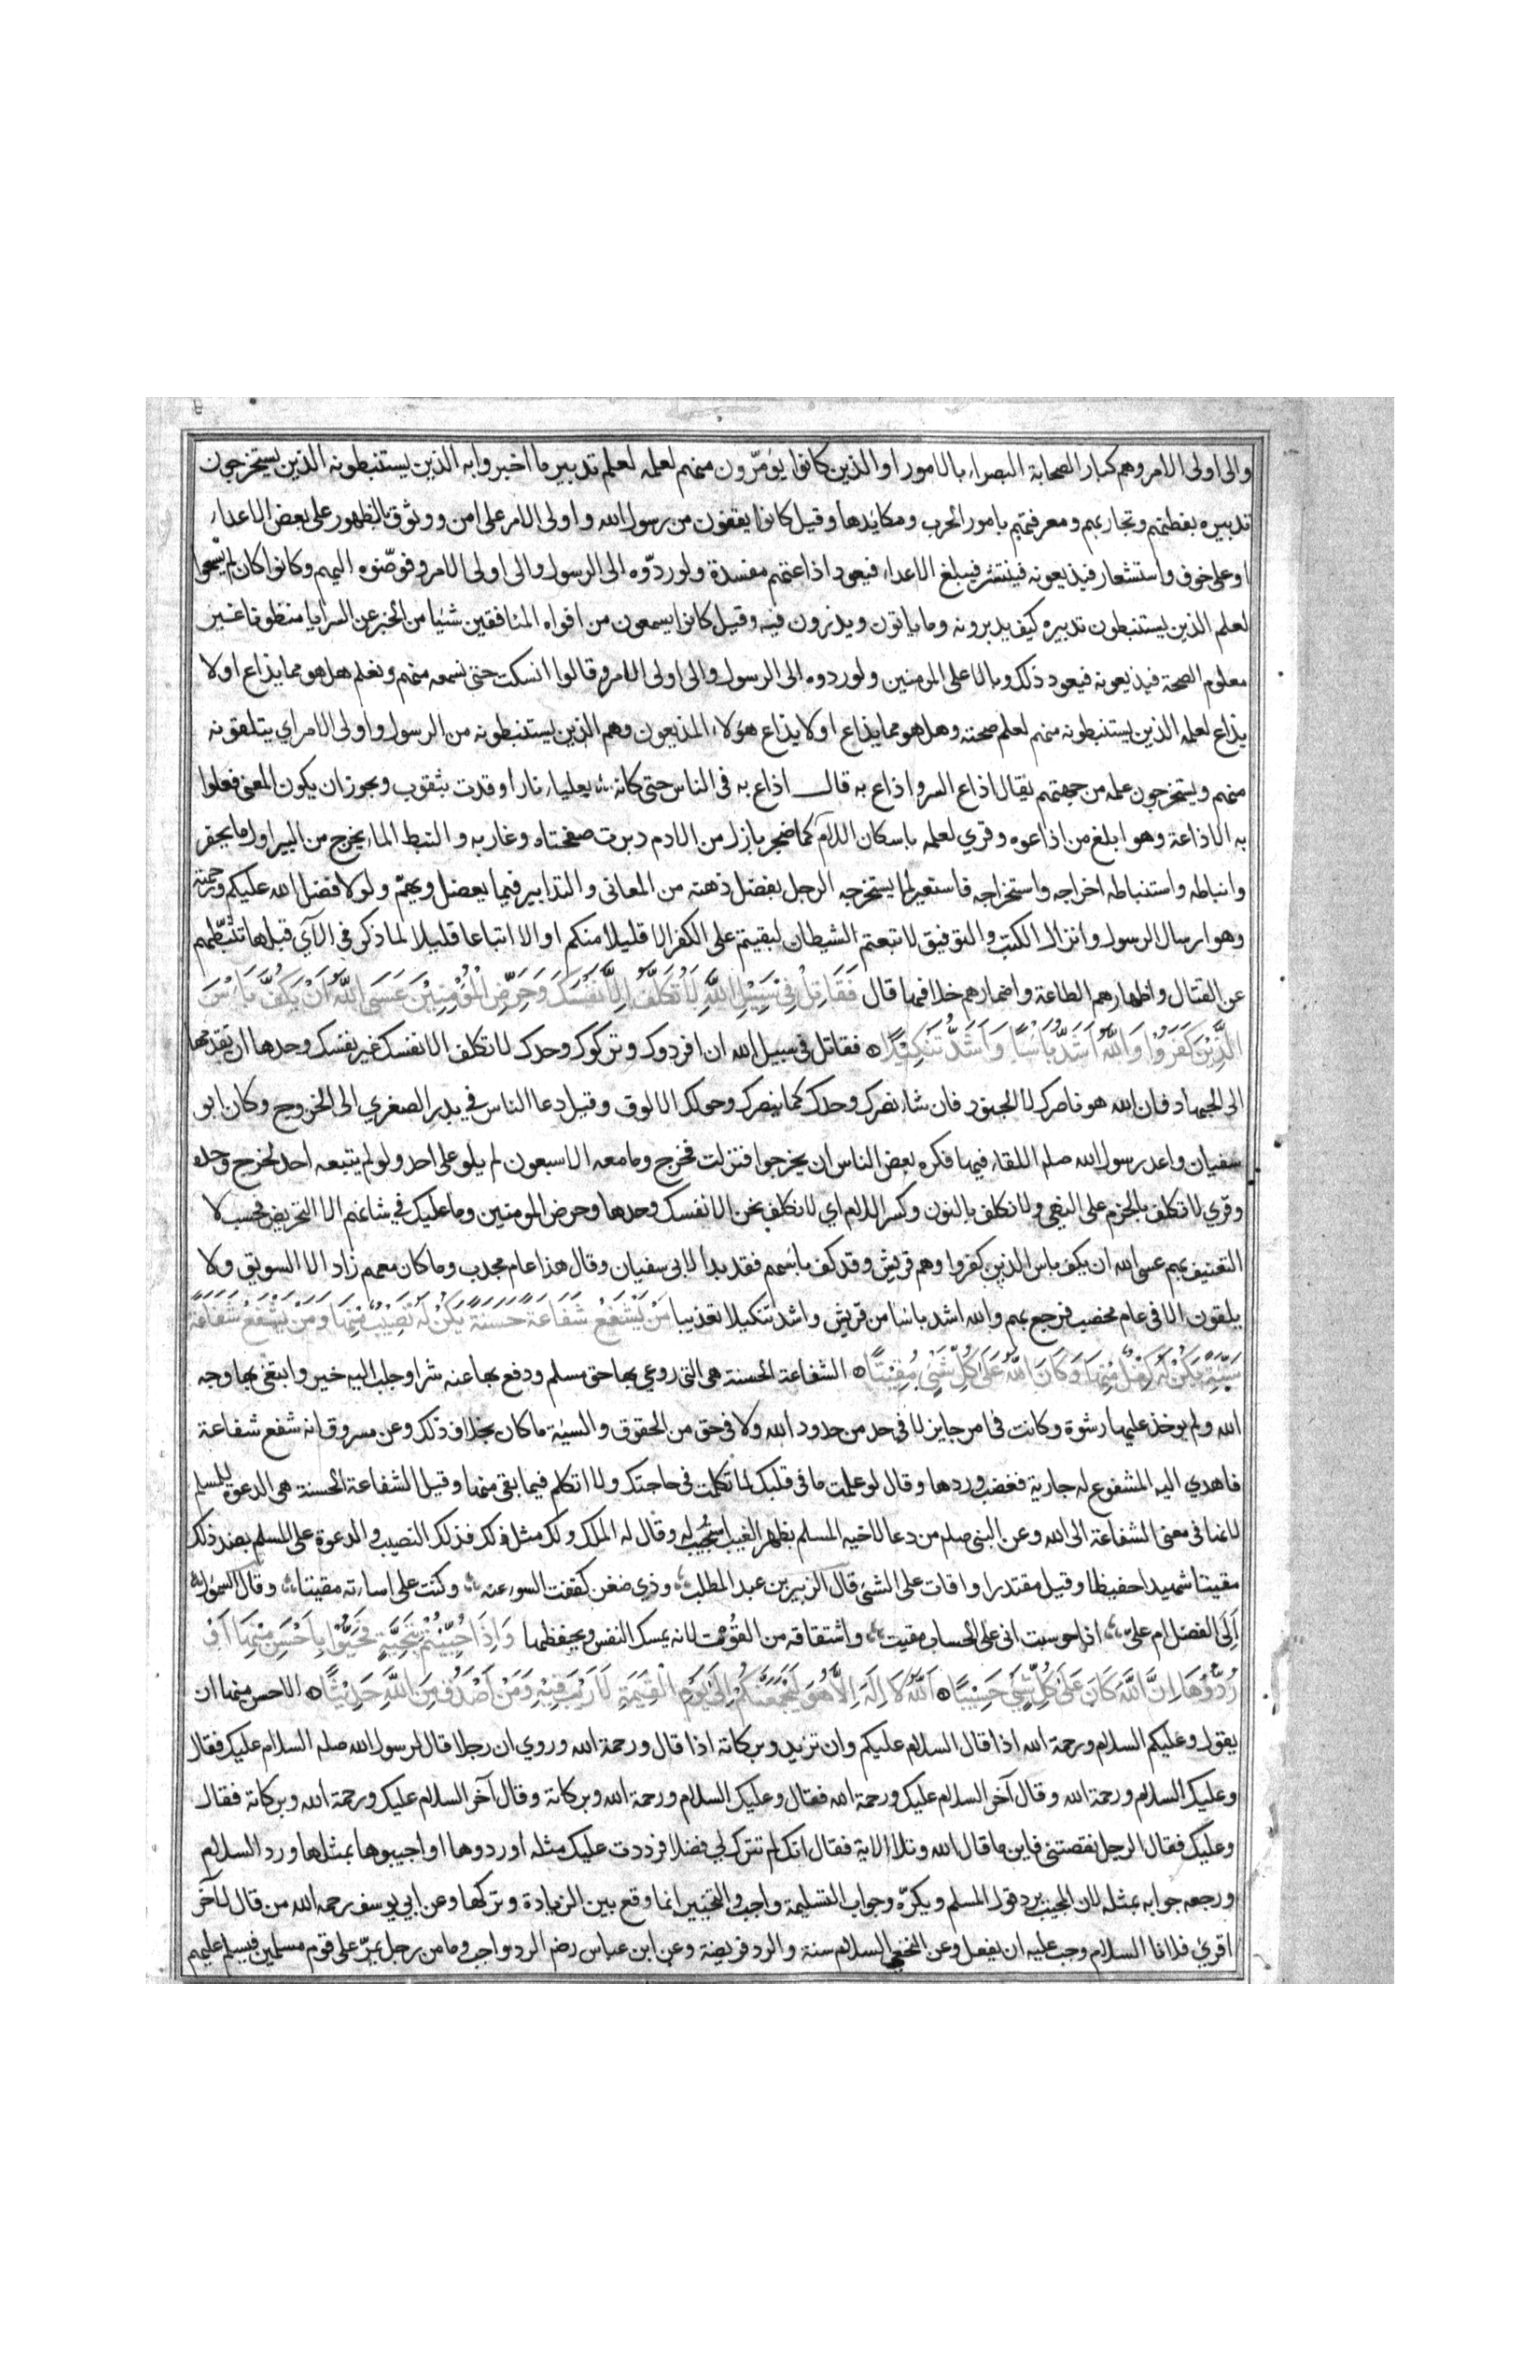 والى اولى الامر وهم كبار الصحابة البصراء بالامور او الذين كانوا يؤمّرون منهم لعلمه لعلم تدبير ما اخبروا به الذين يستنبطونه الذين يستخرجون
تدبيره بفطنهم وتجاربهم ومعرفتهم بامور الحرب ومكايدها وقيل كانوا يقفون من رسول الله واولى الامر على امن ووثوق بالظهور على بعض الاعداء
او على خوف واستشعار فيذيعونه فينتشر فيبلغ الاعداء فيعود اذاعتهم مفسدة ولو ردّوه الى الرسول والى اولى الامر وفوّضوه اليهم وكانوا كان لم يسمعوا
لعلم الذين يستنبطون تدبيره كيف يدبرونه وما ياتون ويذرون فيه وقيل كانوا يسمعون من افواه المنافقين شيئا من الخبر عن السرايا مظنونا غير
معلوم الصحة فيذيعونه فيعود ذلك وبالا على المومنين ولو ردوه الى الرسول والى اولى الامر وقالوا نسكت حتى نسمعه منهم ونعلم هل هو مما يذاع او لا
يذاع لعلمه الذين يستنبطونه منهم لعلم صحته وهل هو مما يذاع او لا يذاع هؤلاء المذيعون وهم الذين يستنبطونه من الرسول واولى الامر اي يتلقونه
منهم ويستخرجون علمه من جهتهم يقال اذاع السر واذاع به قال اذاع به في الناس حتى كانه بعلياء نار اوقدت بثقوب ويجوز ان يكون المعنى فعلوا
به الاذاعة وهو ابلغ من اذاعوه وقري لعلمه باسكان اللام كما ضجر بازل من الادم دبرت صفحتاه وغاربه والنبط الماء يخرج من البير اول ما يحفر
وانباطه واستنباطه اخراجه واستخراجه فاستعير لما يستخرجه الرجل بفضل ذهنه من المعاني والتدابير فيما يعضل ويهمّ ولولا فضل الله عليكم ورحمته
وهو ارسال الرسول وانزال الكتب والتوفيق لاتبعتم الشيطان لبقيتم على الكفر الا قليلا منكم او الا اتباعا قليلا لما ذكر في الآي قبلها تثبّطهم
عن القتال واظهارهم الطاعة واضمارهم خلافها قال فَقَاتِلْ فِيْ سَبِيْلِ اللّٰهِ لَا تُكَلَّفُ اِلَّا نَفْسَكَ وَحَرِّضِ الْمُؤْمِنِيْنَ عَسَى اللّٰهُ اَنْ يَكُفَّ بَاْسَ
الَّذِيْنَ كَفَرُوْا وَاللّٰهُ اَشَدُّ بَاْسًا وَاَشَدُّ تَنْكِيْلًا فقاتل في سبيل الله ان افردوك وتركوك وحدك لا تكلف الا نفسك غير نفسك وحدها ان تقدمها
الى الجهاد فان الله هو ناصرك لا الجنود فان شاء نصرك وحدك كما ينصرك وحولك الالوف وقيل دعا الناس في بدر الصغري الى الخروج وكان ابو
سفيان واعد رسول الله صلم اللقاء فيها فكره بعض الناس ان يخرجوا فنزلت فخرج وما معه الا سبعون لم يلو على احد ولو لم يتبعه احد لخرج وحده
وقري لا تكلف بالجزم على النهي ولا نكلف بالنون وكسر اللام اي لا نكلف نحن الا نفسك وحدها وحرض المومنين وما عليك في شانهم الا التحريض فحسب لا
التعنيف بهم عسى الله ان يكف باس الذين كفروا وهم قريش وقد كف باسهم فقد بدا لابي سفيان وقال هذا عام مجدب وما كان معهم زاد الا السويق ولا
يلقون الا في عام مخصب فرجع بهم والله اشد باسا من قريش واشد تنكيلا تعذيبا مَنْ يَّشْفَعْ شَفَاعَةً حَسَنَةً يَّكُنْ لَهُ نَصِيْبٌ مِنْهَا وَمَنْ يَشْفَعْ شَفَاعَةً
سَيِّئَةً يَكُنْ لَهُ كِفْلٌ مِنْهَا وَكَانَ اللّٰهُ عَلَى كُلِّ شَيْءٍ مُقِيْتًا الشفاعة الحسنة هي التي روعي بها حق مسلم ودفع بها عنه شر او جلب اليه خير وابتغى بها وجه
الله ولم يوخذ عليها رشوة وكانت في امر جايز لا في حد من حدود الله ولا في حق من الحقوق والسيئة ما كان بخلاف ذلك وعن مسروق انه شفع شفاعة
فاهدي اليه المشفوع له جارية فغضب وردها وقال لو علمت ما في قلبك لما تكلمت في حاجتك ولا اتكلم فيما بقي منها وقيل الشفاعة الحسنة هي الدعوة للمسلم
لانها في معنى الشفاعة الى الله وعن النبي صلم من دعا لاخيه المسلم بظهر الغيب استجيب له وقال له الملك ولك مثل ذلك فذلك النصيب والدعوة على المسلم بضد ذلك
مقيتا شهيدا حفيظا وقيل مقتدرا واقات على الشئ قال الزبير بن عبد المطلب وذي ضغن كففت السوء عنه وكنت على اساءته مقيتا وقال السموال
اَلِيَ الفضل ام عليّ اذا حوسبت اني على الحساب مقيت واشتقاقه من القوت لانه يمسك النفس ويحفظها وَاِذَا حُيِّيْتُمْ بِتَحِيَّةٍ فَحَيُّوْا بِاَحْسَنَ مِنْهَا اَوْ
رُدُّوْهَا اِنَّ اللّٰهَ كَانَ عَلَى كُلِّ شَيْءٍ حَسِيْبًا اَللّٰهُ لَا اِلَهَ اِلَّا هُوَ لَيَجْمَعَنَّكُمْ اِلَى يَوْمِ الْقِيٰمَةِ لَا رَيْبَ فِيْهِ وَمَنْ اَصْدَقُ مِنَ اللّٰهِ حَدِيْثًا الاحسن منها ان
يقول وعليكم السلام ورحمة الله اذا قال السلام عليكم وان تزيد وبركاته اذا قال ورحمة الله وروي ان رجلا قال لرسول الله صلم السلام عليك فقال
وعليك السلام ورحمة الله وقال آخر السلام عليك ورحمة الله فقال وعليك السلام ورحمة الله وبركاته وقال آخر السلام عليك ورحمة الله وبركاته فقال
وعليك فقال الرجل نقصتني فاين ما قال الله وتلا الاية فقال انك لم تترك لي فضلا فرددت عليك مثله او ردوها او اجيبوها بمثلها ورد السلام
ورجعه جوابه بمثله لان المجيب يرد قول المسلم ويكرّه وجواب التسليمة واجب والتخيير انما وقع بين الزيادة وتركها وعن ابي يوسف رحمه الله من قال لآخر
اقرئ فلانا السلام وجب عليه ان يفعل وعن النخعي السلام سنة والرد فريضة وعن ابن عباس رضم الرد واجب وما من رجل يمرّ على قوم مسلمين فيسلم عليهم